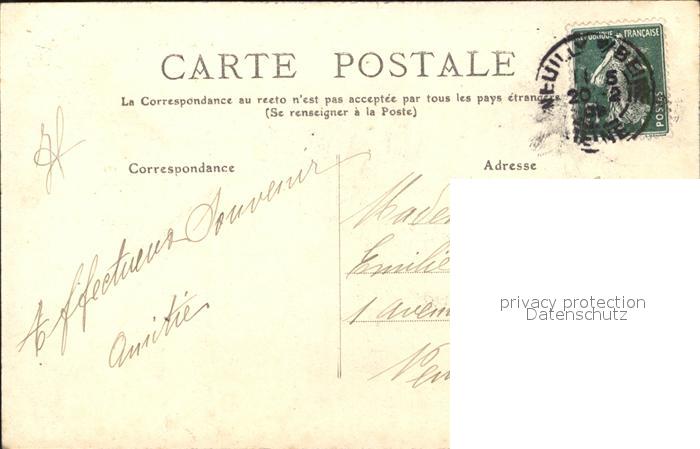 CARTE POSTALE
La Correspondance au recto n'est pas acceptée par tous les pays étrangers
(Se renseigner à la Poste)
REPUBLIQUE FRANÇAISE
POSTES
Correspondance
Affectueux Souvenir
Amitié
Adresse
Madem
Emilie
1 aven
privacy protection
Datenschutz